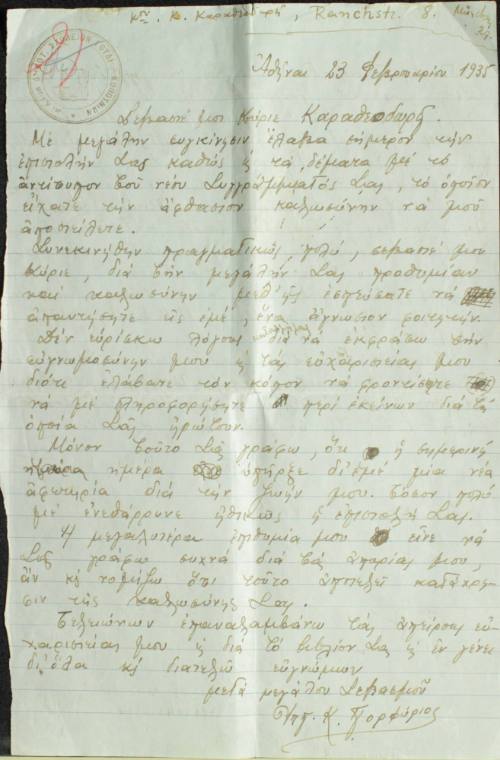 κον Κ. Καραθεοδωρή, Rauchstr. 8.
Ἀθῆναι 23 Φεβρουαρίου 1935
Σεβαστέ μοι Κύριε Καραθεοδωρῆ.
Μὲ μεγάλην συγκίνησιν ἔλαβα σήμερον τὴν
ἐπιστολήν Σας καθὼς κ τὰ δέματα μὲ τὸ
ἀντίτυπον τοῦ νέου Συγγράμματός Σας, τὸ ὁποῖον
εἴχατε τὴν ἄφθαστον καλωσύνην νὰ μοῦ
ἀποστείλετε.
Συνεκινήθην πραγματικῶς πολύ, σεβαστέ μου
Κύριε, διὰ τὴν μεγάλην Σας προθυμίαν
καὶ καλωσύνην μεθ' ἧς ἐσπεύσατε νὰ
ἀπαντήσητε εἰς ἐμέ, ἕνα ἄγνωστον φοιτητήν.
Δὲν εὑρίσκω λόγους διὰ νὰ ἐκφράσω τὴν
εὐγνωμοσύνην μου κ τὰς εὐχαριστείας μου
διότι ἐλάβατε τὸν κόπον νὰ φροντίσετε
νὰ μὲ πληροφορήσητε περὶ ἐκείνων διὰ τὰ
ὁποῖα Σᾶς ἠρώτουν.
Μόνον τοῦτο Σᾶς γράφω, ὅτι ἡ σημερινὴ
ἡμέρα ὑπῆρξε δι' ἐμὲ μία νέα
ἀφετηρία διὰ τὴν ζωήν μου. Τόσον πολὺ
μὲ ἐνεθάρρυνε ἠθικῶς ἡ ἐπιστολή Σας.
Ἡ μεγαλυτέρα ἐπιθυμία μου εἶνε νὰ
Σᾶς γράφω συχνὰ διὰ τὰς ἀπορίας μου,
ἂν κ νομίζω ὅτι τοῦτο ἀποτελεῖ κατάχρη-
σιν τῆς καλωσύνης Σας.
Τελειώνων ἐπαναλαμβάνω τὰς ἀπείρους εὐ-
χαριστείας μου κ διὰ τὸ βιβλίον Σας κ ἐν γένει
δι' ὅλα κ διατελῶ εὐγνώμων
μετὰ μεγάλου Σεβασμοῦ
Κ. Πορφύριος